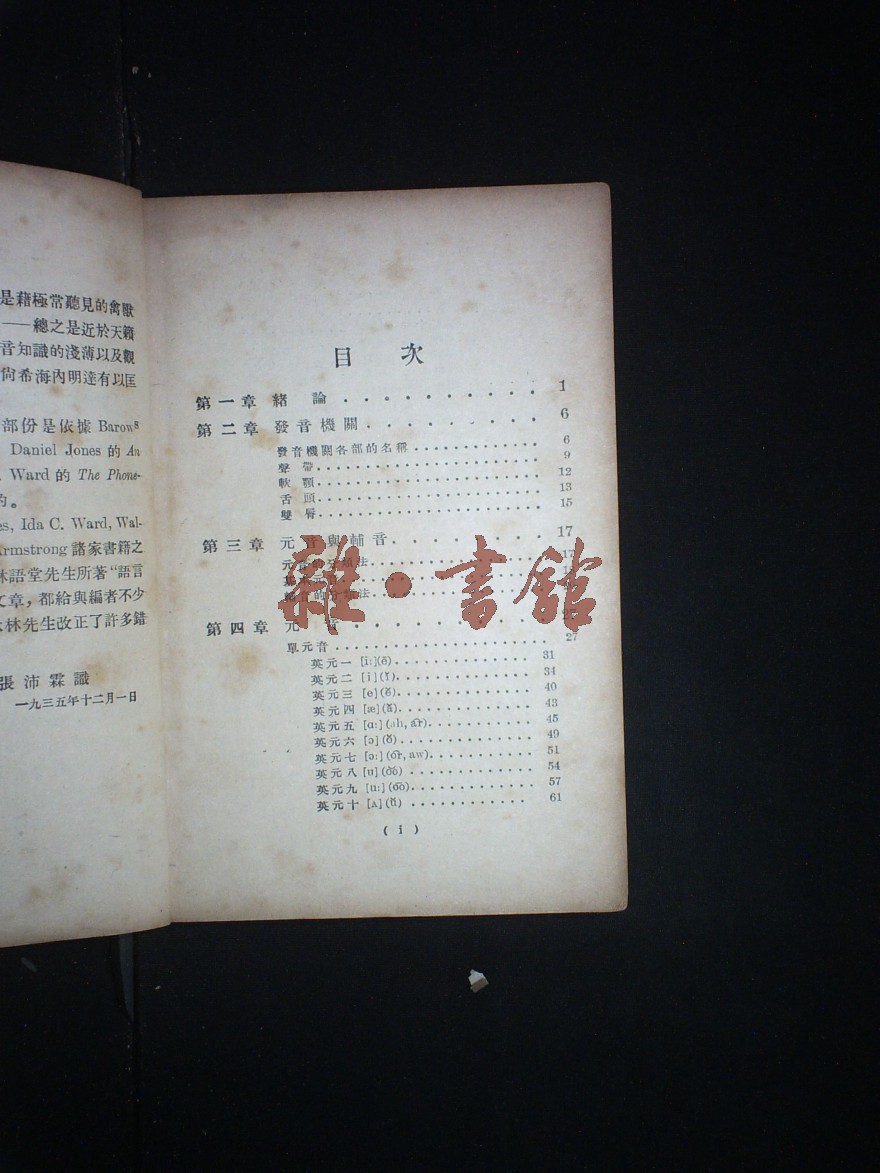 是藉極常聽見的禽獸
——總之是近於天籟
音知識的淺薄以及觀
尙希海內明達有以匡
部份是依據 Barows
Daniel Jones 的 An
Ward 的 The Phone-
的。
es, Ida C. Ward, Wal-
Armstrong 諸家書籍之
林語堂先生所著“語言
文章，都給與編者不少
林先生改正了許多錯
張沛霖識
一九三五年十二月一日
目次
第一章 緒論 1
第二章 發音機關 6
發音機關各部的名稱 6
聲帶 9
軟顎 12
舌頭 13
雙脣 15
第三章 元音與輔音 17
元音的分類法 17
元
音的分類法
第四章 元音
單元音 27
英元一 [i:](ē) 31
英元二 [i](ĭ) 34
英元三 [e](ĕ) 40
英元四 [æ](ă) 43
英元五 [ɑ:](ah, är) 45
英元六 [ɔ](ŏ) 49
英元七 [ɔ:](ôr, aw) 51
英元八 [u](o͝o) 54
英元九 [u:](o͞o) 57
英元十 [ʌ](ŭ) 61
( i )
雜·書館